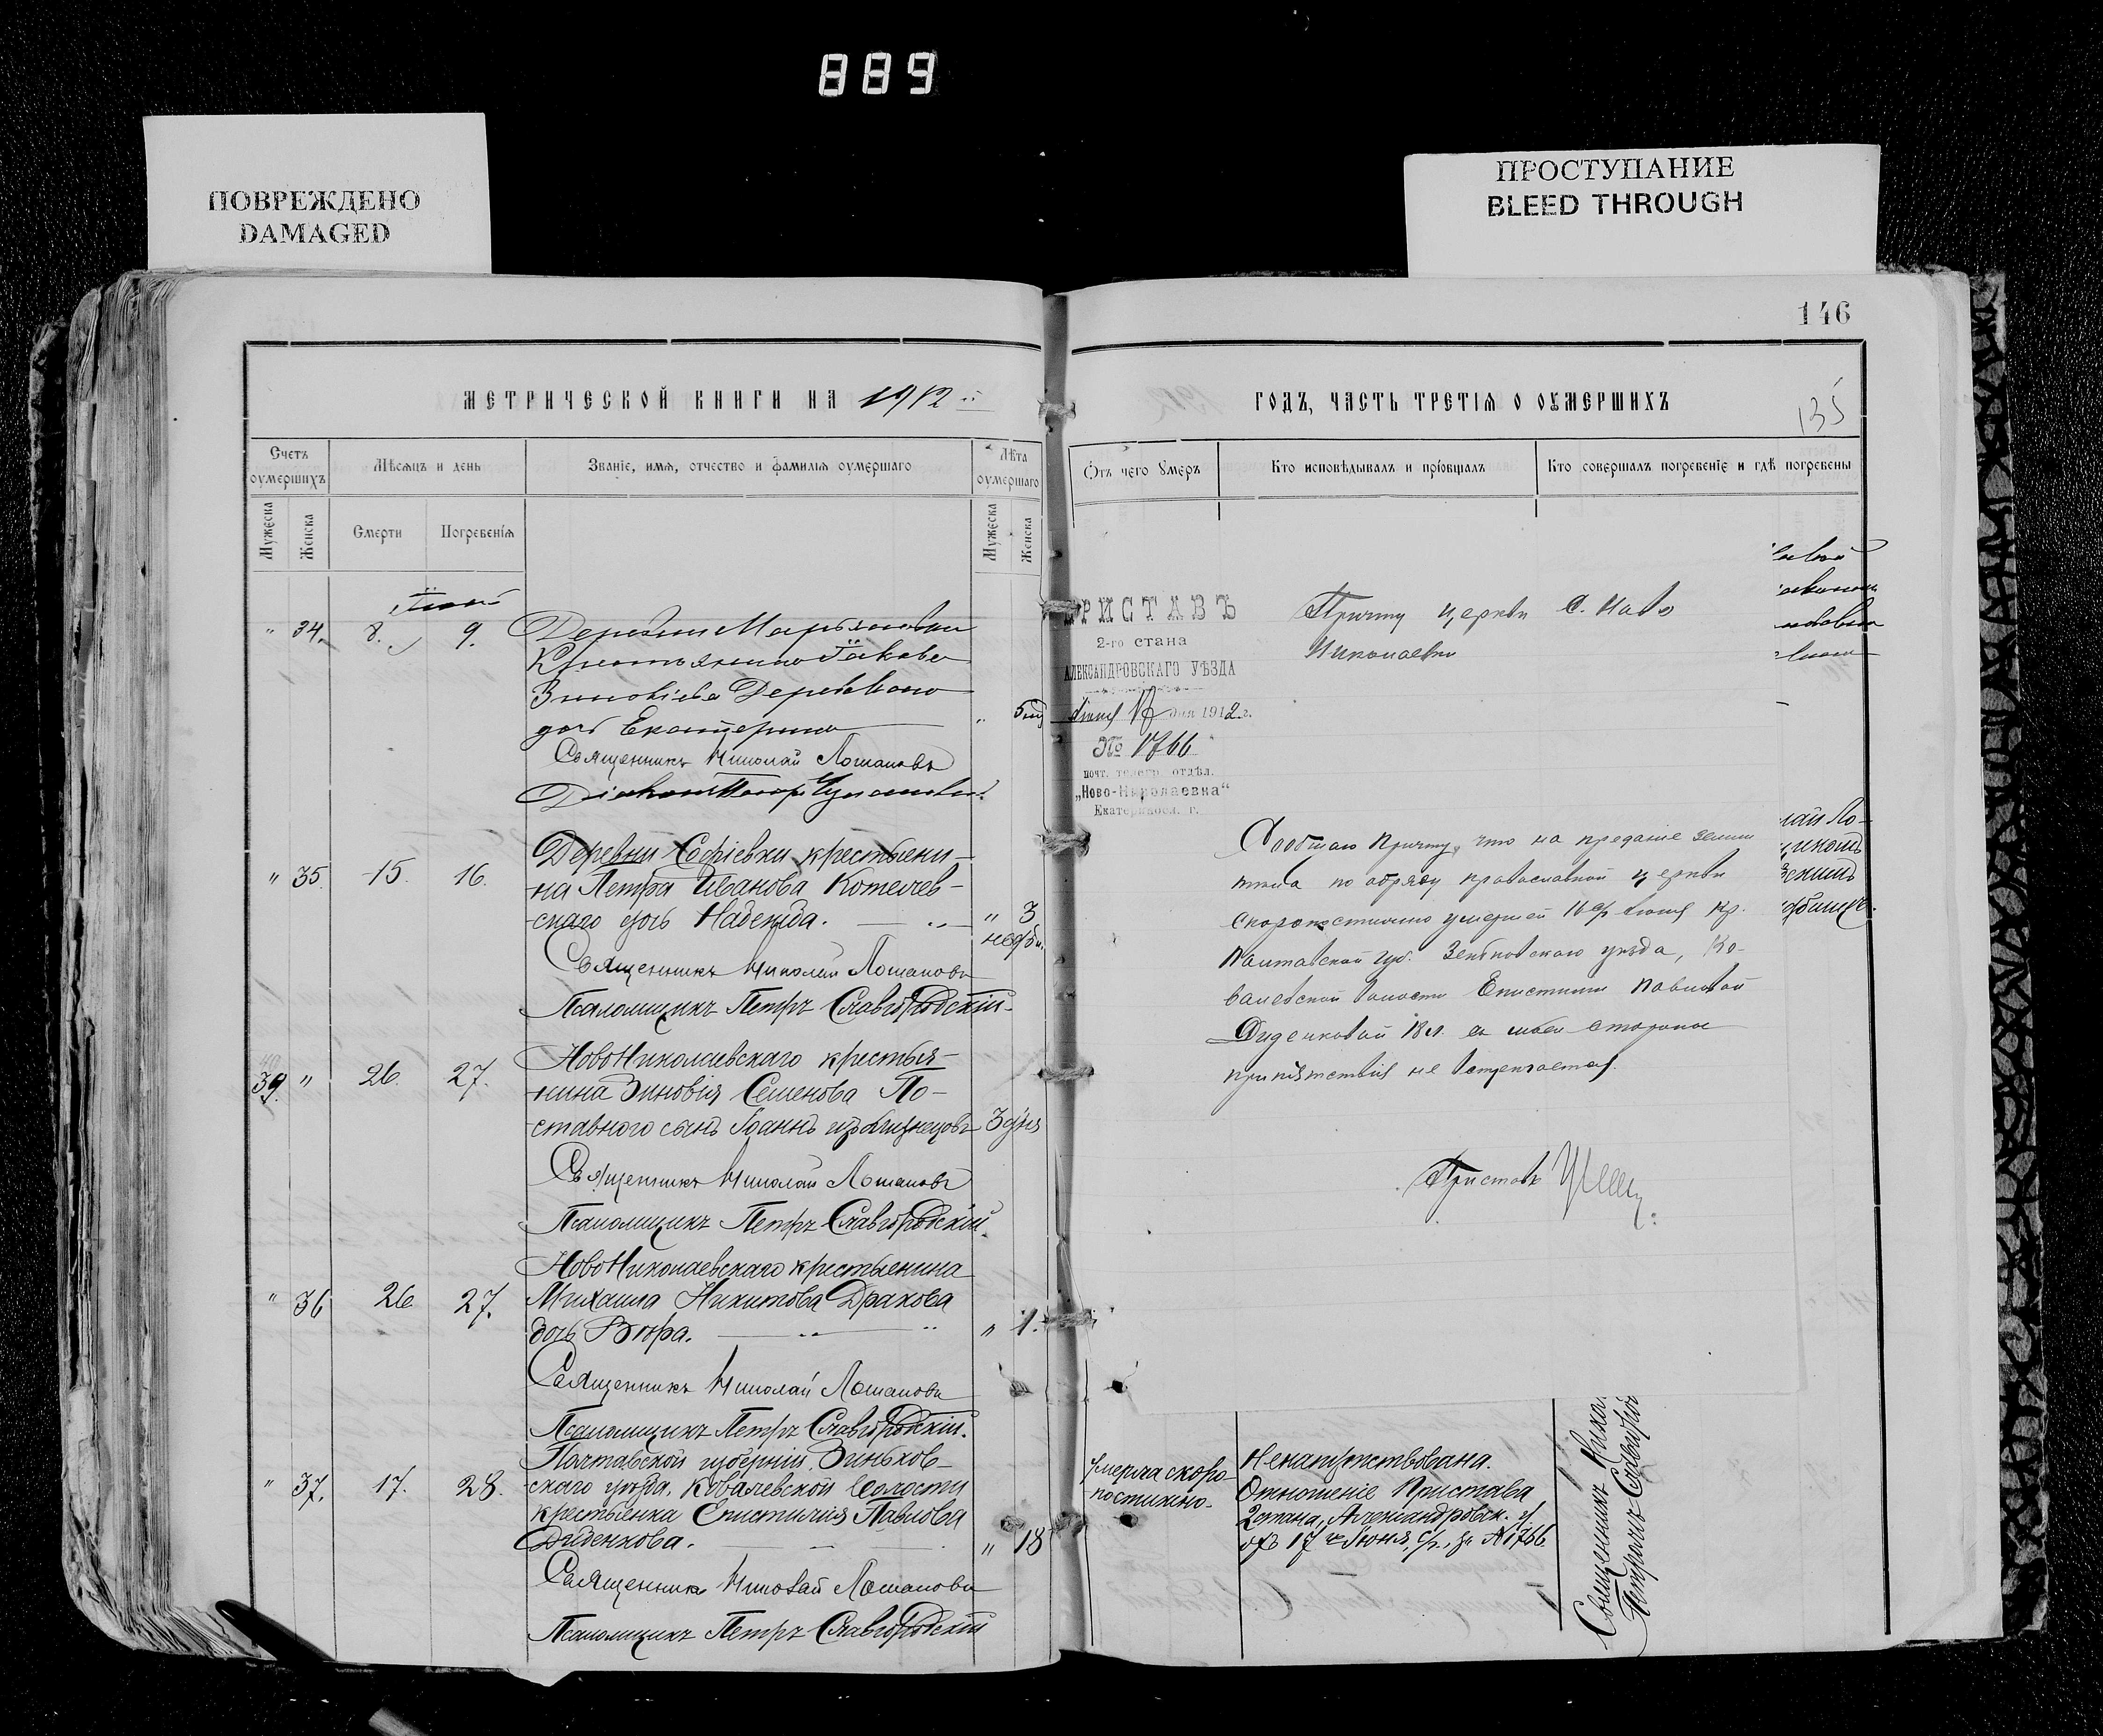 889
ПОВРЕЖДЕНО
DAMAGED
ПРОСТУПАНИЕ
BLEED THROUGH
МЕТРИЧЕСКОЙ КНИГИ НА 1912
Счетъ оумершихъ
Мѣсяцъ и день
Званіе, имя, отчество и фамилья оумершаго
Лѣта оумершаго
Мужеска
Женска
Смерти
Погребенія
Мужеска
Женска
Іюнь
" 34. 8. 9. Деревни Марьяновки
Крестьянина Іакова
Зиновіева Деревянко
дочь Екатерина " 5
Священникъ Николай Лошаковъ
Діаконъ
" 35. 15. 16. Деревни Софіевки крестьяни-
на Петра Иванова Котелев-
скаго дочь Надежда. " 3
нед.
Священникъ Николай Лошаковъ
Псаломщикъ Петръ Славгородскій.
39. " 26. 27. НовоНиколаевскаго крестья-
нина Зиновія Семенова По-
ставного сынъ Іоаннъ изъ близнецовъ 3 дня
Священникъ Николай Лошаковъ
Псаломщикъ Петръ Славгородскій.
НовоНиколаевскаго крестьянина
" 36 26 27. Михаила Никитова Дракова
дочь Вѣра. " 1.
Священникъ Николай Лошаковъ
Псаломщикъ Петръ Славгородскій.
Полтавской губерніи, Зиньков-
" 37. 17. 28. скаго уѣзда, Ковалевской волости
крестьянка Епистимія Павлова
Диденкова. " 18
Священникъ Николай Лошаковъ
Псаломщикъ Петръ Славгородскій
146
ГОДЪ, ЧАСТЬ ТРЕТІЯ О ОУМЕРШИХЪ
135
Отъ чего умеръ
Кто исповѣдывалъ и пріобщалъ
Кто совершалъ погребеніе и гдѣ погребены
ПРИСТАВЪ
2-го стана
АЛЕКСАНДРОВСКАГО УѢЗДА
Іюня 17 дня 1912 г.
№ 1766
почт. телегр. отдѣл.
„Ново-Николаевка"
Екатеринос. г.
Причту церкви С. Ново
Николаевки
Сообщаю Причту, что на преданіе земли
тѣла по обряду православной церкви
скоропостижно умершей 16 с/г Іюня кр.
Полтавской губ. Зеньковскаго уѣзда, Ко-
валевской волости Епистиміи Павловой
Диденковой 18 л. съ моей стороны
препятствія не встрѣчается.
Приставъ
Умерла скоро-
постижно.
Ненапутствована.
Отношеніе Пристава
2 стана, Александровск. у.
отъ 17 го Іюня, с/г., за № 1766
Священникъ Никол
Петромъ Славгород